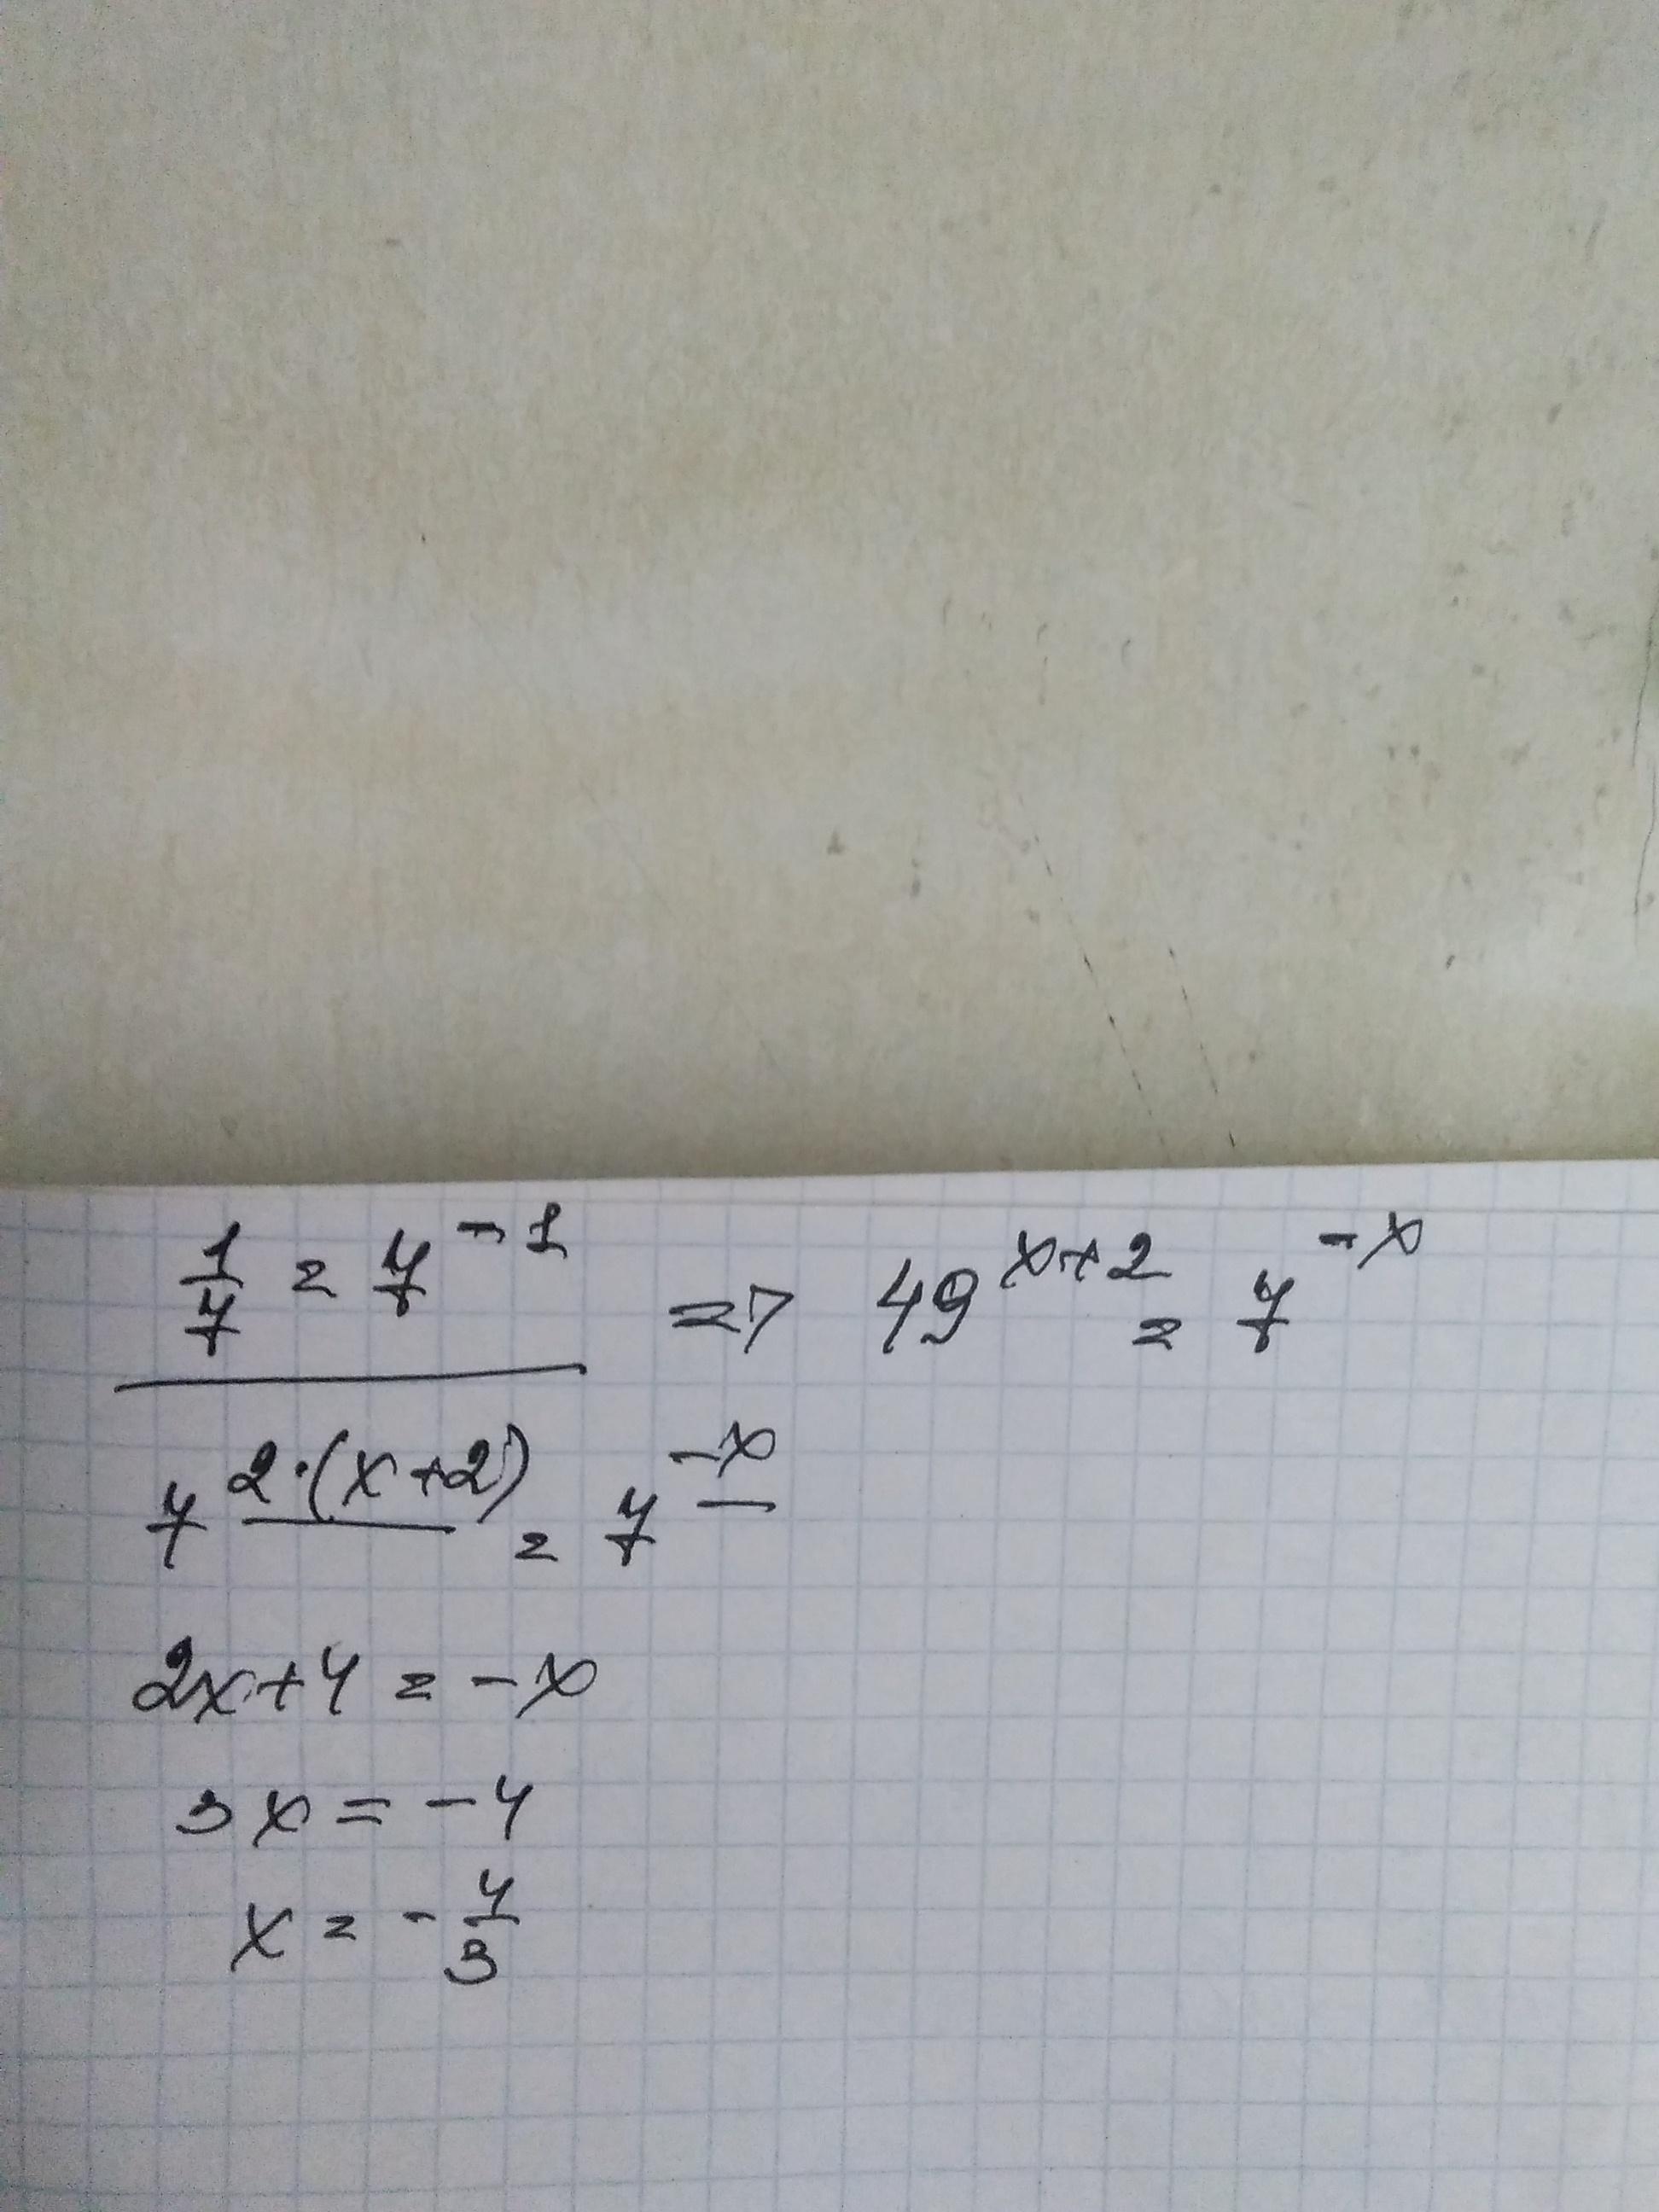 1/7 = 7^-1 => 49^x+2 = 7^-x
7^2·(x+2) = 7^-x
2x+4 = -x
3x = -4
x = -4/3